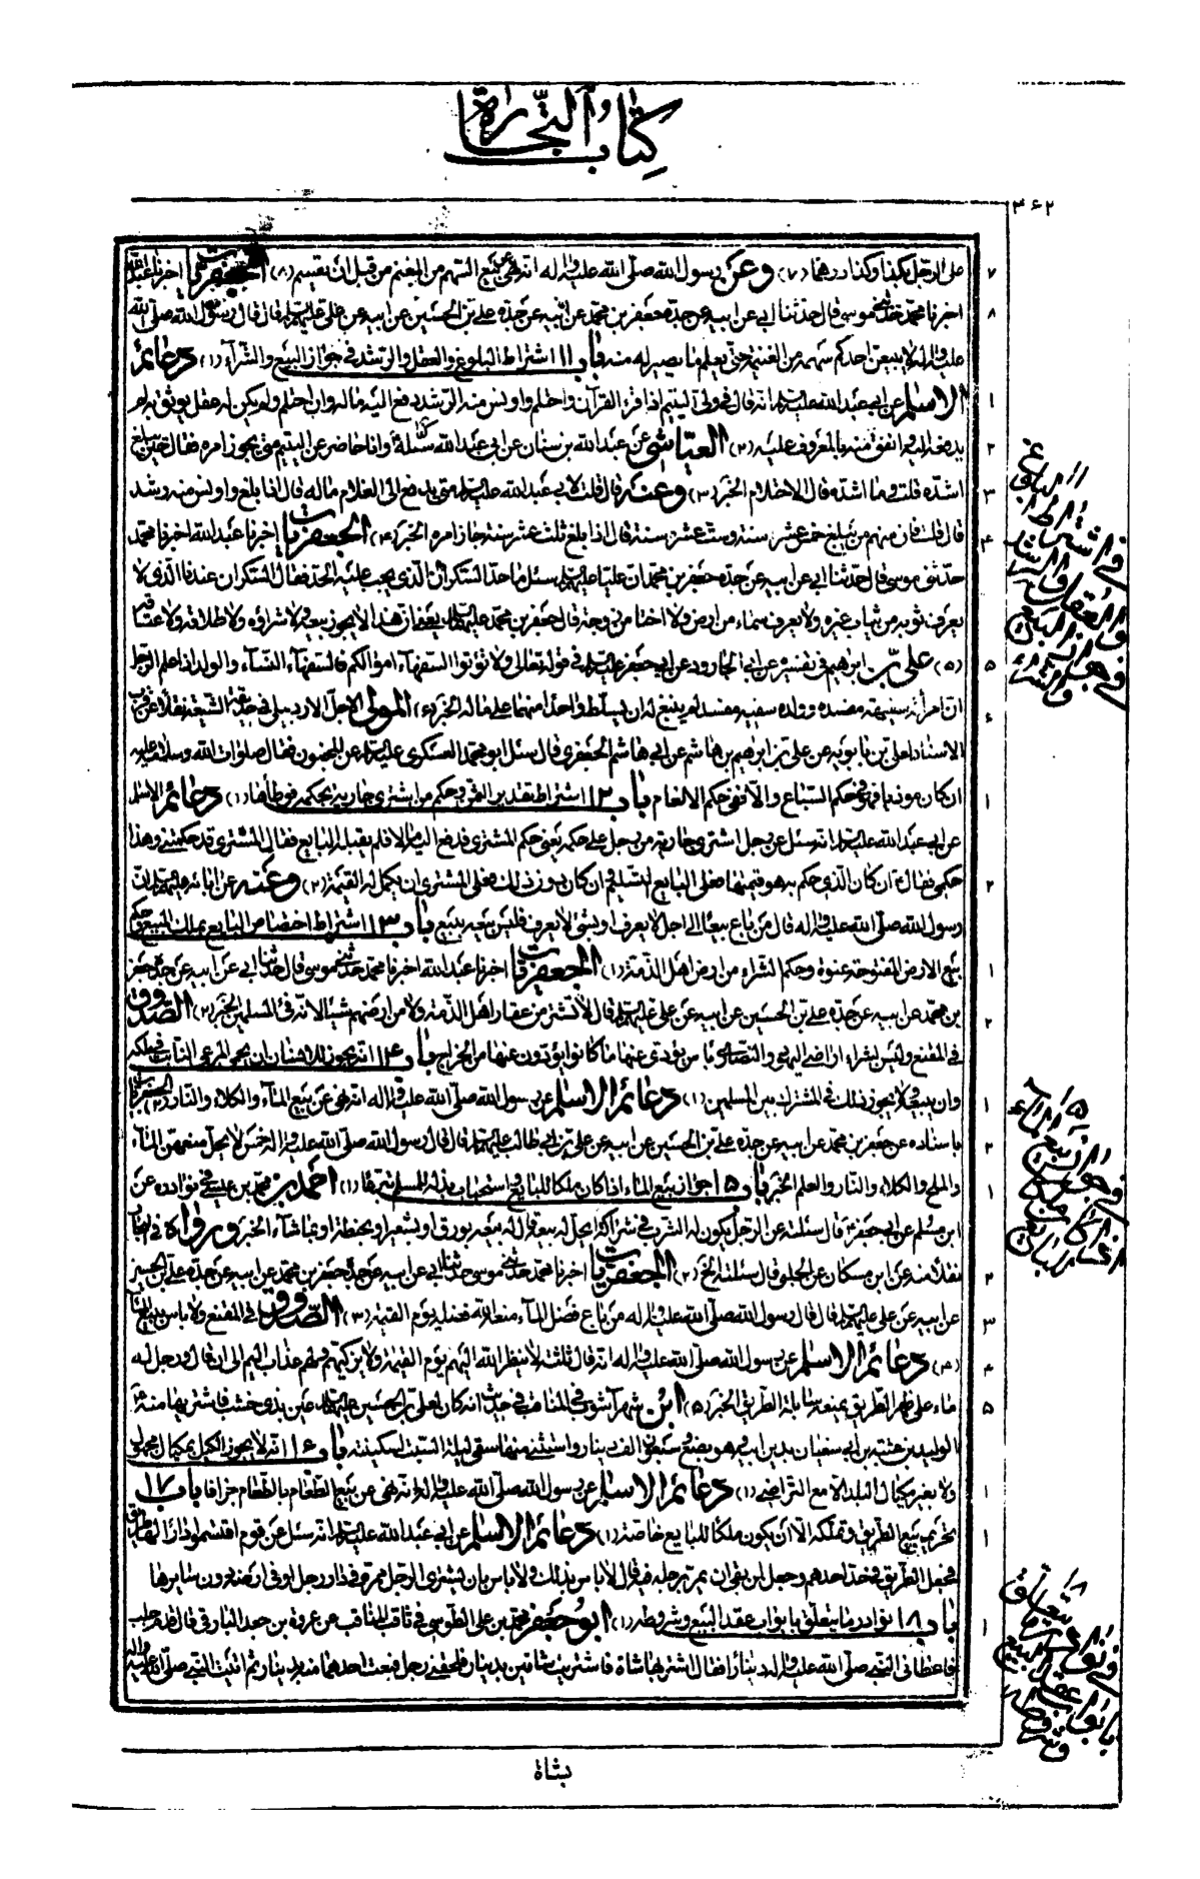 كتاب التجارة
٣۶٢
على الرجل بكذا وكذا درهما (٧) وعن رسول الله صلى الله عليه واله انه نهى عن بيع السهم من المغنم من قبل ان يقسم (٨) الجعفريات اخبرنا عبد الله
اخبرنا محمد حدثني موسى قال حدثنا ابي عن ابيه عن جده جعفر بن محمد عن ابيه عن جده علي بن الحسين عن ابيه عن علي عليهم السلام قال قال رسول الله صلى الله
عليه واله لا يبيعن احدكم سهمه من الغنيمة حتى يعلم ما يصير له منه باب ١١ اشتراط البلوغ والعقل والرشد في جواز البيع والشرآء (١) دعائم
الاسلام عن ابي عبد الله عليه السلام انه قال في ولي اليتيم اذا قرء القرآن واحتلم واونس منه الرشد دفع اليه ماله وان احتلم ولم يكن له عقل يوثق به لم
يدفع اليه وانفق منه بالمعروف عليه (٢) العياشي عن عبد الله بن سنان عن ابي عبد الله سئله ابي وانا حاضر عن اليتيم متى يجوز امره فقال حين يبلغ
اشده قلت وما اشده قال الاحتلام الخبر (٣) وعنه قال قلت لابي عبد الله عليه السلام متى يدفع الى الغلام ماله قال اذا بلغ واونس منه رشد
قال قلت فان منهم من يبلغ خمس عشر سنة وست عشر سنة قال اذا بلغ ثلث عشر سنة جاز امره الخبر (۴) الجعفريات اخبرنا عبد الله اخبرنا محمد
حدثني موسى قال حدثنا ابي عن ابيه عن جده جعفر بن محمد ان عليا عليه السلام سئل ما حد السكران الذي يجب عليه الحد فقال السكران عندنا الذي لا
يعرف ثوبه من ثياب غيره ولا يعرف سماء من ارض ولا اختا من زوجة قال جعفر بن محمد عليهما السلام يعني ان هذا لا يجوز بيعه ولا شراؤه ولا طلاقه ولا عتاقه
(۵) علي بن ابراهيم في تفسيره عن ابي الجارود عن ابي جعفر عليه السلام في قوله تعالى ولا تؤتوا السفهاء اموالكم فالسفهآء النسآء والولد اذا علم الرجل
ان امرأته سفيهة مفسدة وولده سفيه مفسد لم ينبغ له ان يسلط واحدا منهما على ماله الخبر (۶) المولى الاجل الاردبيلي في حديقة الشيعة نقلا عن قرب
الاسناد لعلي بن بابويه عن علي بن ابراهيم بن هاشم عن ابي هاشم الجعفري قال سئل ابو محمد العسكري عليه السلام عن المجنون فقال صلوات الله وسلامه عليه
ان كان موذيا فهو في حكم السباع والا ففي حكم الانعام باب ١٢ اشتراط تقدير الثمن وحكم من اشترى جارية بحكمه فوطأها (١) دعائم الاسلام
عن ابي عبد الله عليه السلام انه سئل عن رجل اشترى جارية من رجل على حكمه يعني حكم المشتري فدفع اليه مالا فلم يقبله البايع فقال المشتري قد حكمتني وهذا
حكمي فقال ع ان كان الذي حكم به هو قيمتها فعلى البايع التسليم وان كان دون ذلك فعلى المشتري ان يكمل له القيمة (٢) وعنه عن ابائه عليهم السلام ان
رسول الله صلى الله عليه واله قال من باع بيعا الى اجل لا يعرف او بشئ لا يعرف فليس بيعه ببيع باب ١٣ اشتراط اختصاص البايع بملك المبيع وحكم
بيع الارض المفتوحة عنوة وحكم الشراء من ارض اهل الذمة (١) الجعفريات اخبرنا عبد الله اخبرنا محمد حدثني موسى قال حدثنا ابي عن ابيه عن جده جعفر
بن محمد عن ابيه عن جده علي بن الحسين عن ابيه عن علي عليهم السلام قال لا تشتر من عقار اهل الذمة ولا من ارضهم شيئا لانه فئ المسلمين الخبر (٢) الصدوق
في المقنع وليس بشراء اراضي اليهود والنصارى باس يؤدى عنها ما كانوا يؤدون عنها من الخراج باب ١۴ انه يجوز للانسان ان يحمي المرعى النابت في ملكه
وان يبيعه ولا يجوز ذلك في المشترك بين المسلمين (١) دعائم الاسلام عن رسول الله صلى الله عليه واله انه نهى عن بيع المآء والكلاء والنار (٢) الجعفريات
باسناده عن جعفر بن محمد عن ابيه عن جده علي بن الحسين عن ابيه عن علي بن ابي طالب عليهم السلام قال قال رسول الله صلى الله عليه واله خمس لا يحل منعهن المآء
والملح والكلاء والنار والعلم الخبر باب ١۵ جواز بيع الماء اذا كان ملكا للبايع واستحباب بذله للمسلم تبرعا (١) احمد بن محمد بن عيسى في نوادره عن
ابن مسلم عن ابي جعفر ع قال سئلته عن الرجل يكون له الشرب في شركة ايحل له بيعه قال له بيعه بورق او بشعير او بحنطة او بما شآء الخبر ورواه كما في البحار
نقلا منه عن ابن مسكان عن الحلبي قال سئلته الخ (٢) الجعفريات اخبرنا محمد حدثني موسى حدثنا ابي عن ابيه عن جده جعفر بن محمد عن ابيه عن جده علي بن الحسين
عن ابيه عن علي عليهم السلام قال قال رسول الله صلى الله عليه واله من باع فضل المآء منعه الله فضله يوم القيمة (٣) الصدوق في المقنع ولا باس ببيع المآء
(۴) دعائم الاسلام عن رسول الله صلى الله عليه واله انه قال ثلثة لا ينظر الله اليهم يوم القيمة ولا يزكيهم ولهم عذاب اليم الى ان قال ورجل له
ماء على ظهر الطريق يمنعه سابلة الطريق الخبر (۵) ابن شهرآشوب في المناقب في حديث انه كان لعلي بن الحسين عليه السلام عين بذي خشب فاشتريها منه
الوليد بن عتبة بن ابي سفيان بدين ابيه وهو بضع وسبعون الف دينار واستثنى منها سقي ليلة السبت لسكينة باب ١۶ انه لا يجوز الكيل بمكيال مجهول
ولا بغير مكيال البلد الا مع التراضي (١) دعائم الاسلام عن رسول الله صلى الله عليه واله انه نهى عن بيع الطعام بالطعام جزافا باب ١٧
تحريم بيع الطريق وتملكه الا ان يكون ملكا للبايع خاصة (١) دعائم الاسلام عن ابي عبد الله عليه السلام انه سئل عن قوم اقتسموا دارا لها طريق
فجعل الطريق في حد احدهم وجعل لمن بقي ان يمر برجله فيه قال لا باس بذلك ولا باس بان يشتري الرجل ممره في دار رجل او في ارضه دون سايرها
باب ١٨ نوادر ما يتعلق بابواب عقد البيع وشروطه (١) ابو جعفر محمد بن علي الطوسي في ثاقب المناقب عن عروة بن جعد البارقي قال قدم جلب
فاعطاني النبي صلى الله عليه واله دينارا فقال اشتر بها شاة فاشتريت شاتين بدينار فلحقني رجل فبعت احدهما منه بدينار ثم اتيت النبي صلى الله عليه واله
١١
في اشتراط البلوغ
والعقل والرشد
في جواز البيع
والشراء
١۵
في جواز بيع الماء
اذا كان ملكا
للبايع
في نوادر ما يتعلق
بابواب عقد البيع
وشروطه
بشاة